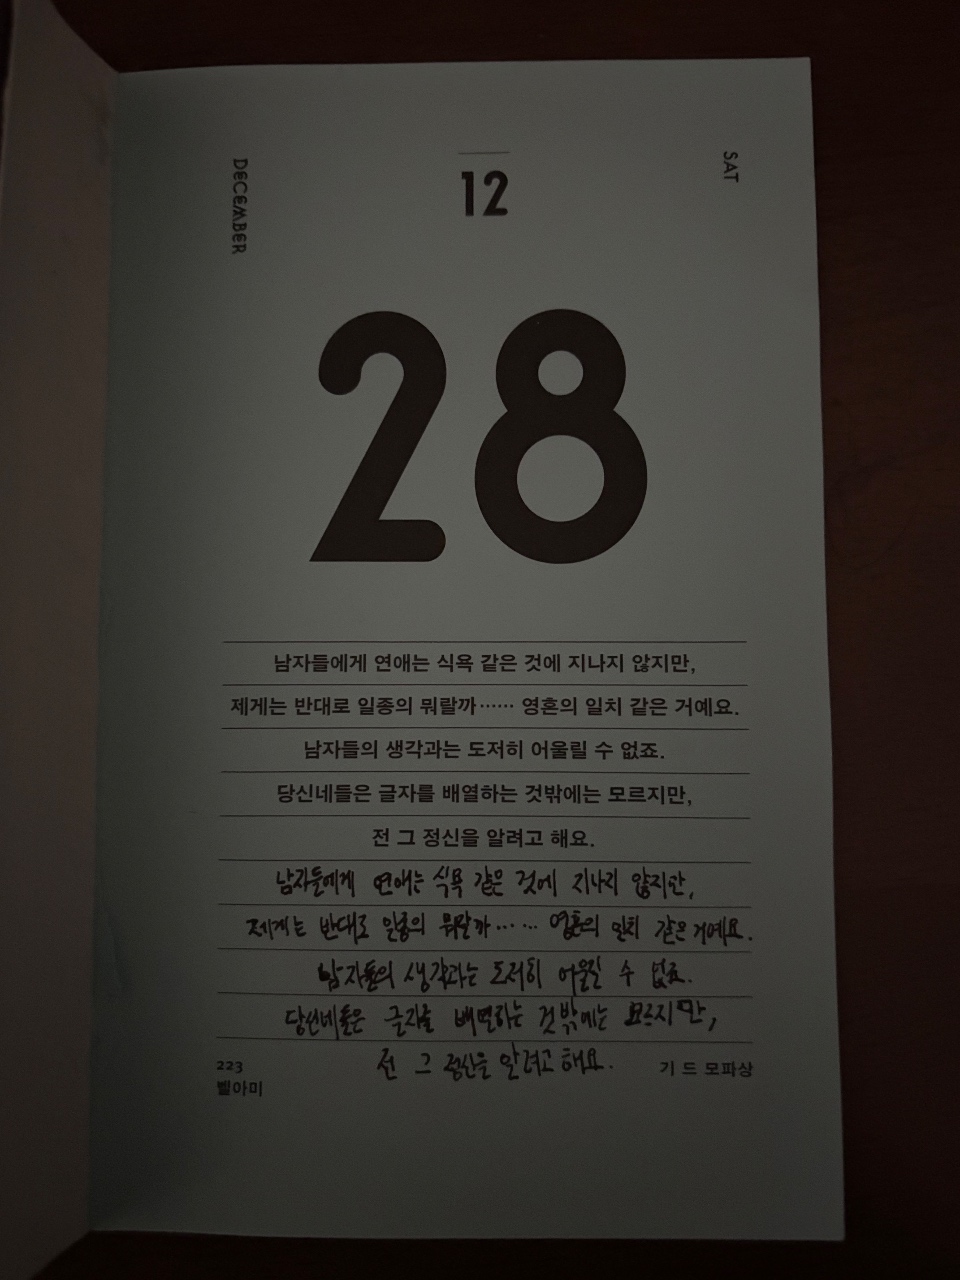 DECEMBER
12
SAT
28
남자들에게 연애는 식욕 같은 것에 지나지 않지만,
제게는 반대로 일종의 뭐랄까…… 영혼의 일치 같은 거예요.
남자들의 생각과는 도저히 어울릴 수 없죠.
당신네들은 글자를 배열하는 것밖에는 모르지만,
전 그 정신을 알려고 해요.
남자들에게 연애는 식욕 같은 것에 지나지 않지만,
제게는 반대로 일종의 뭐랄까…… 영혼의 일치 같은 거예요.
남자들의 생각과는 도저히 어울릴 수 없죠.
당신네들은 글자를 배열하는 것밖에는 모르지만,
전 그 정신을 알려고 해요.
223
벨아미
기 드 모파상